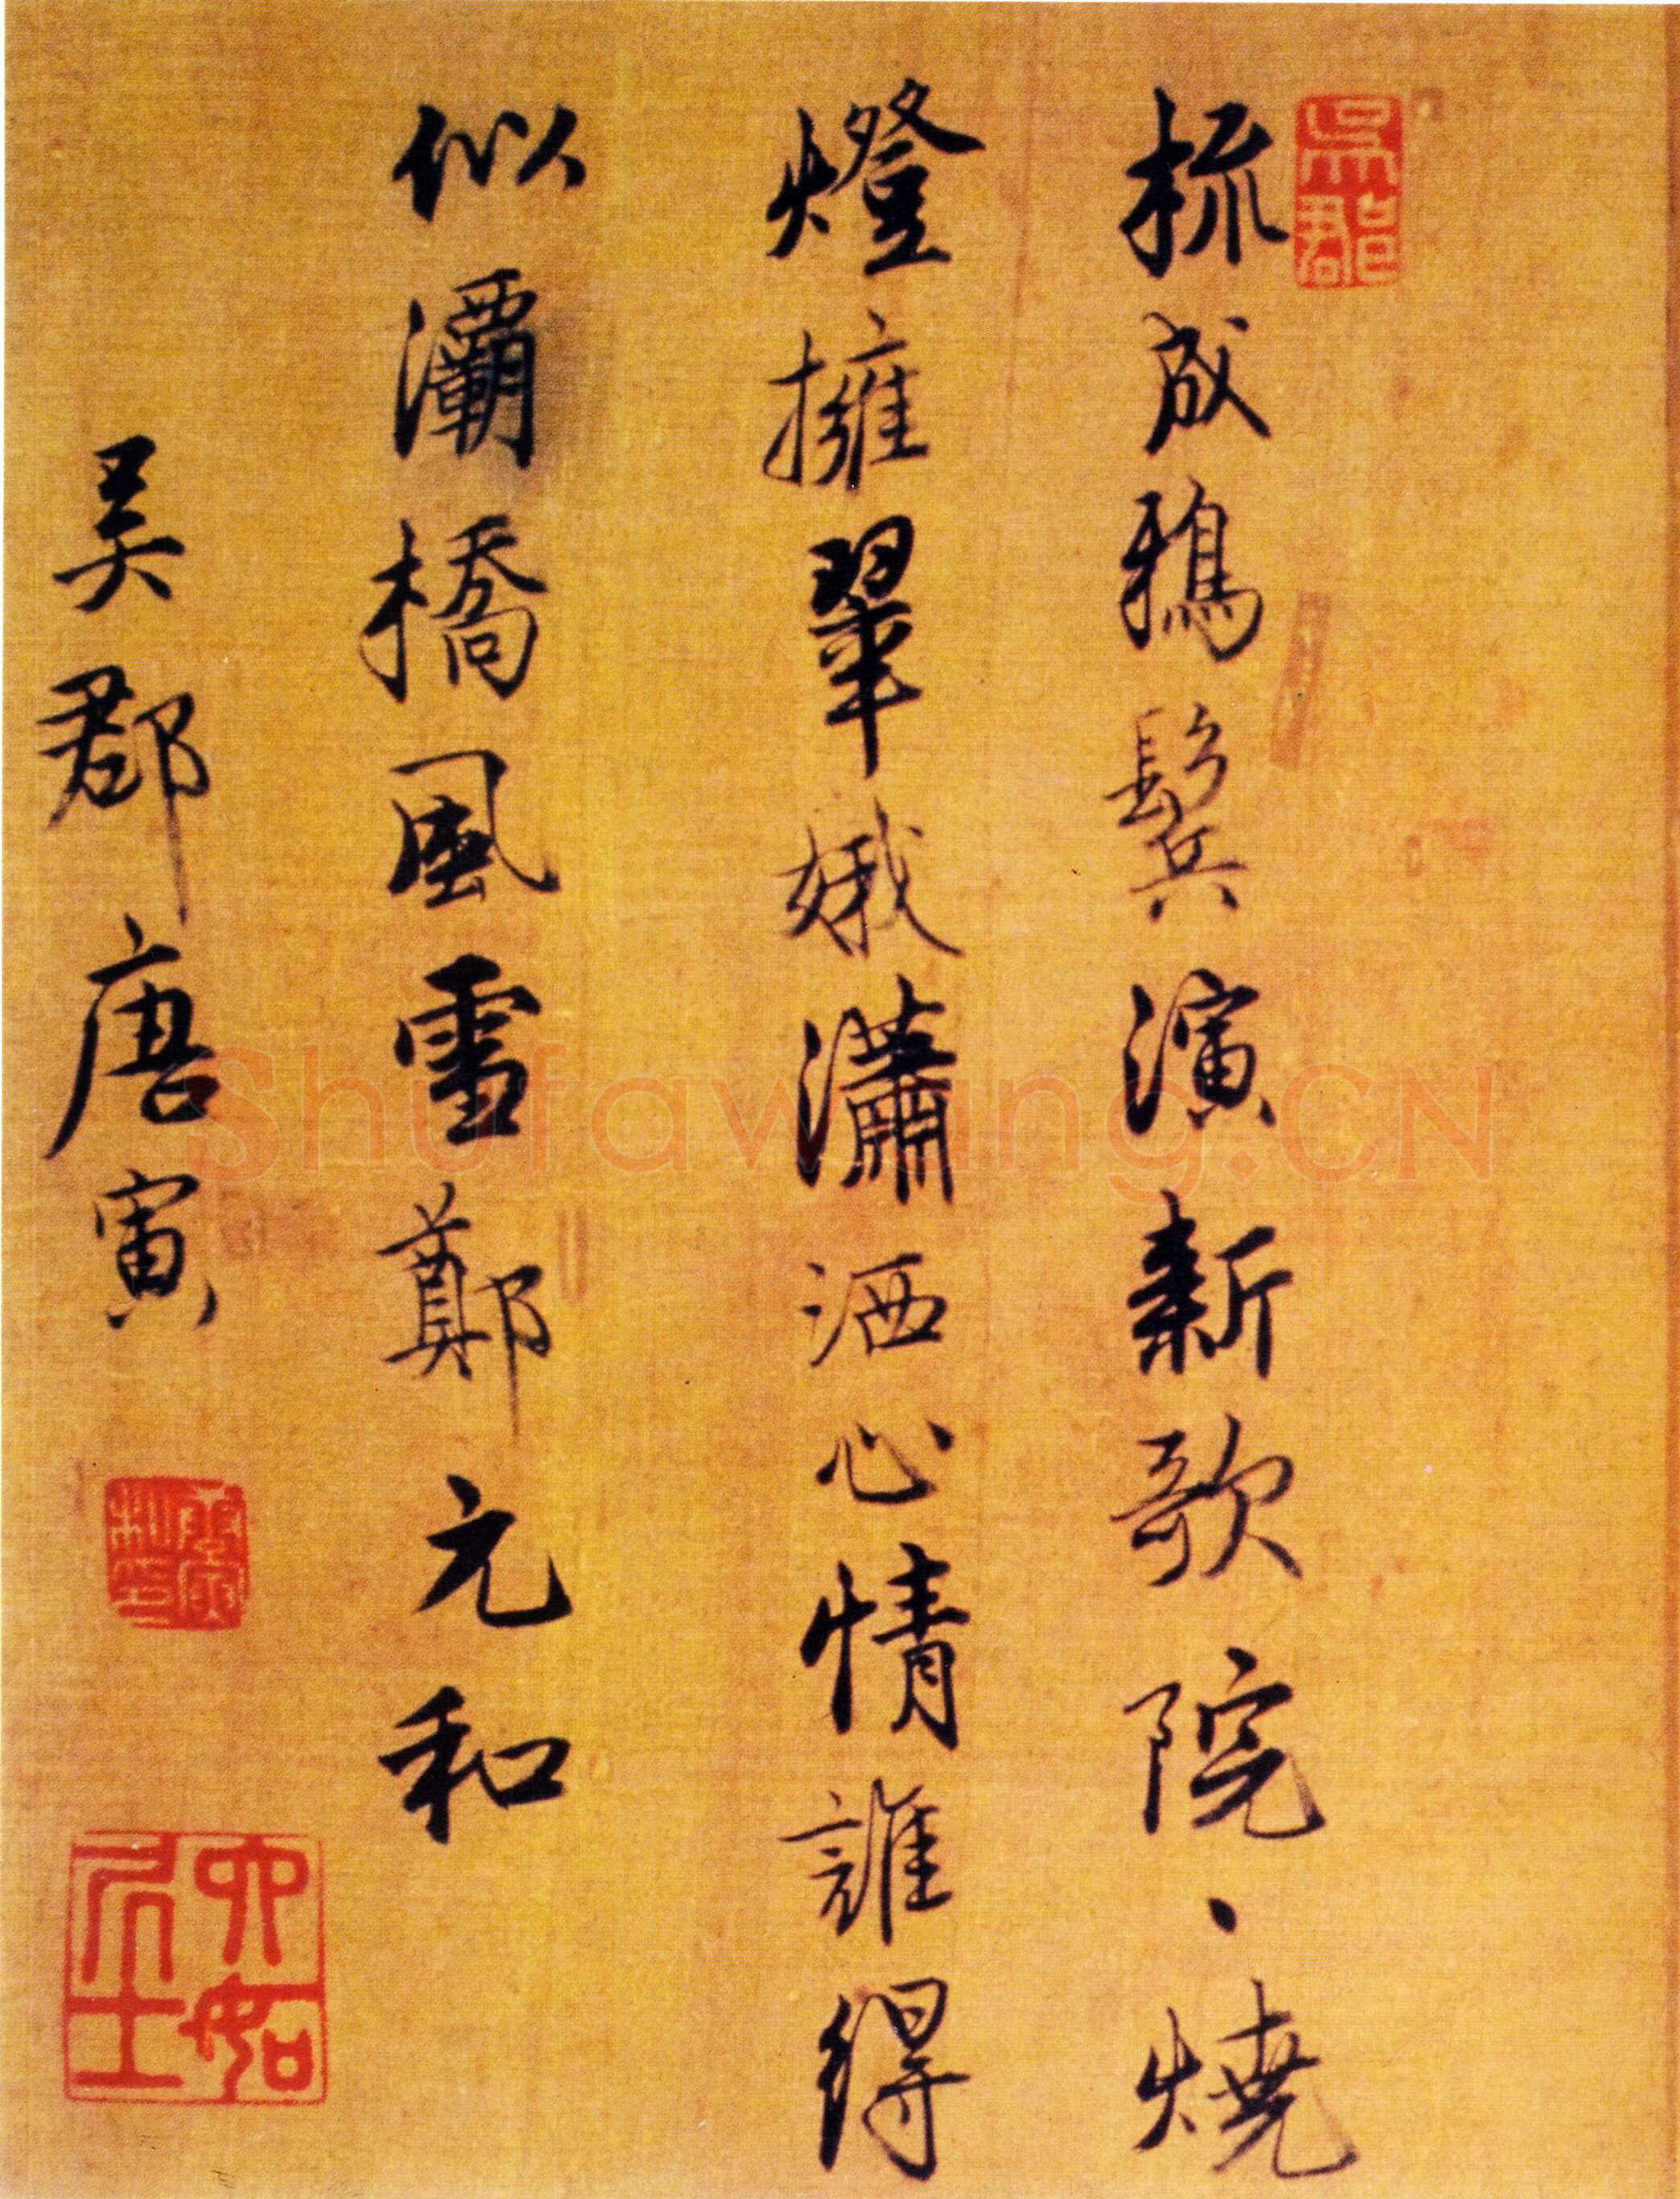 梳成鴉鬓演新歌院、燒
燈擁翠娥瀟洒心情誰得
似灞橋風雪鄭元和
吴郡唐寅
吳郡
六如居士
Shufawang.CN